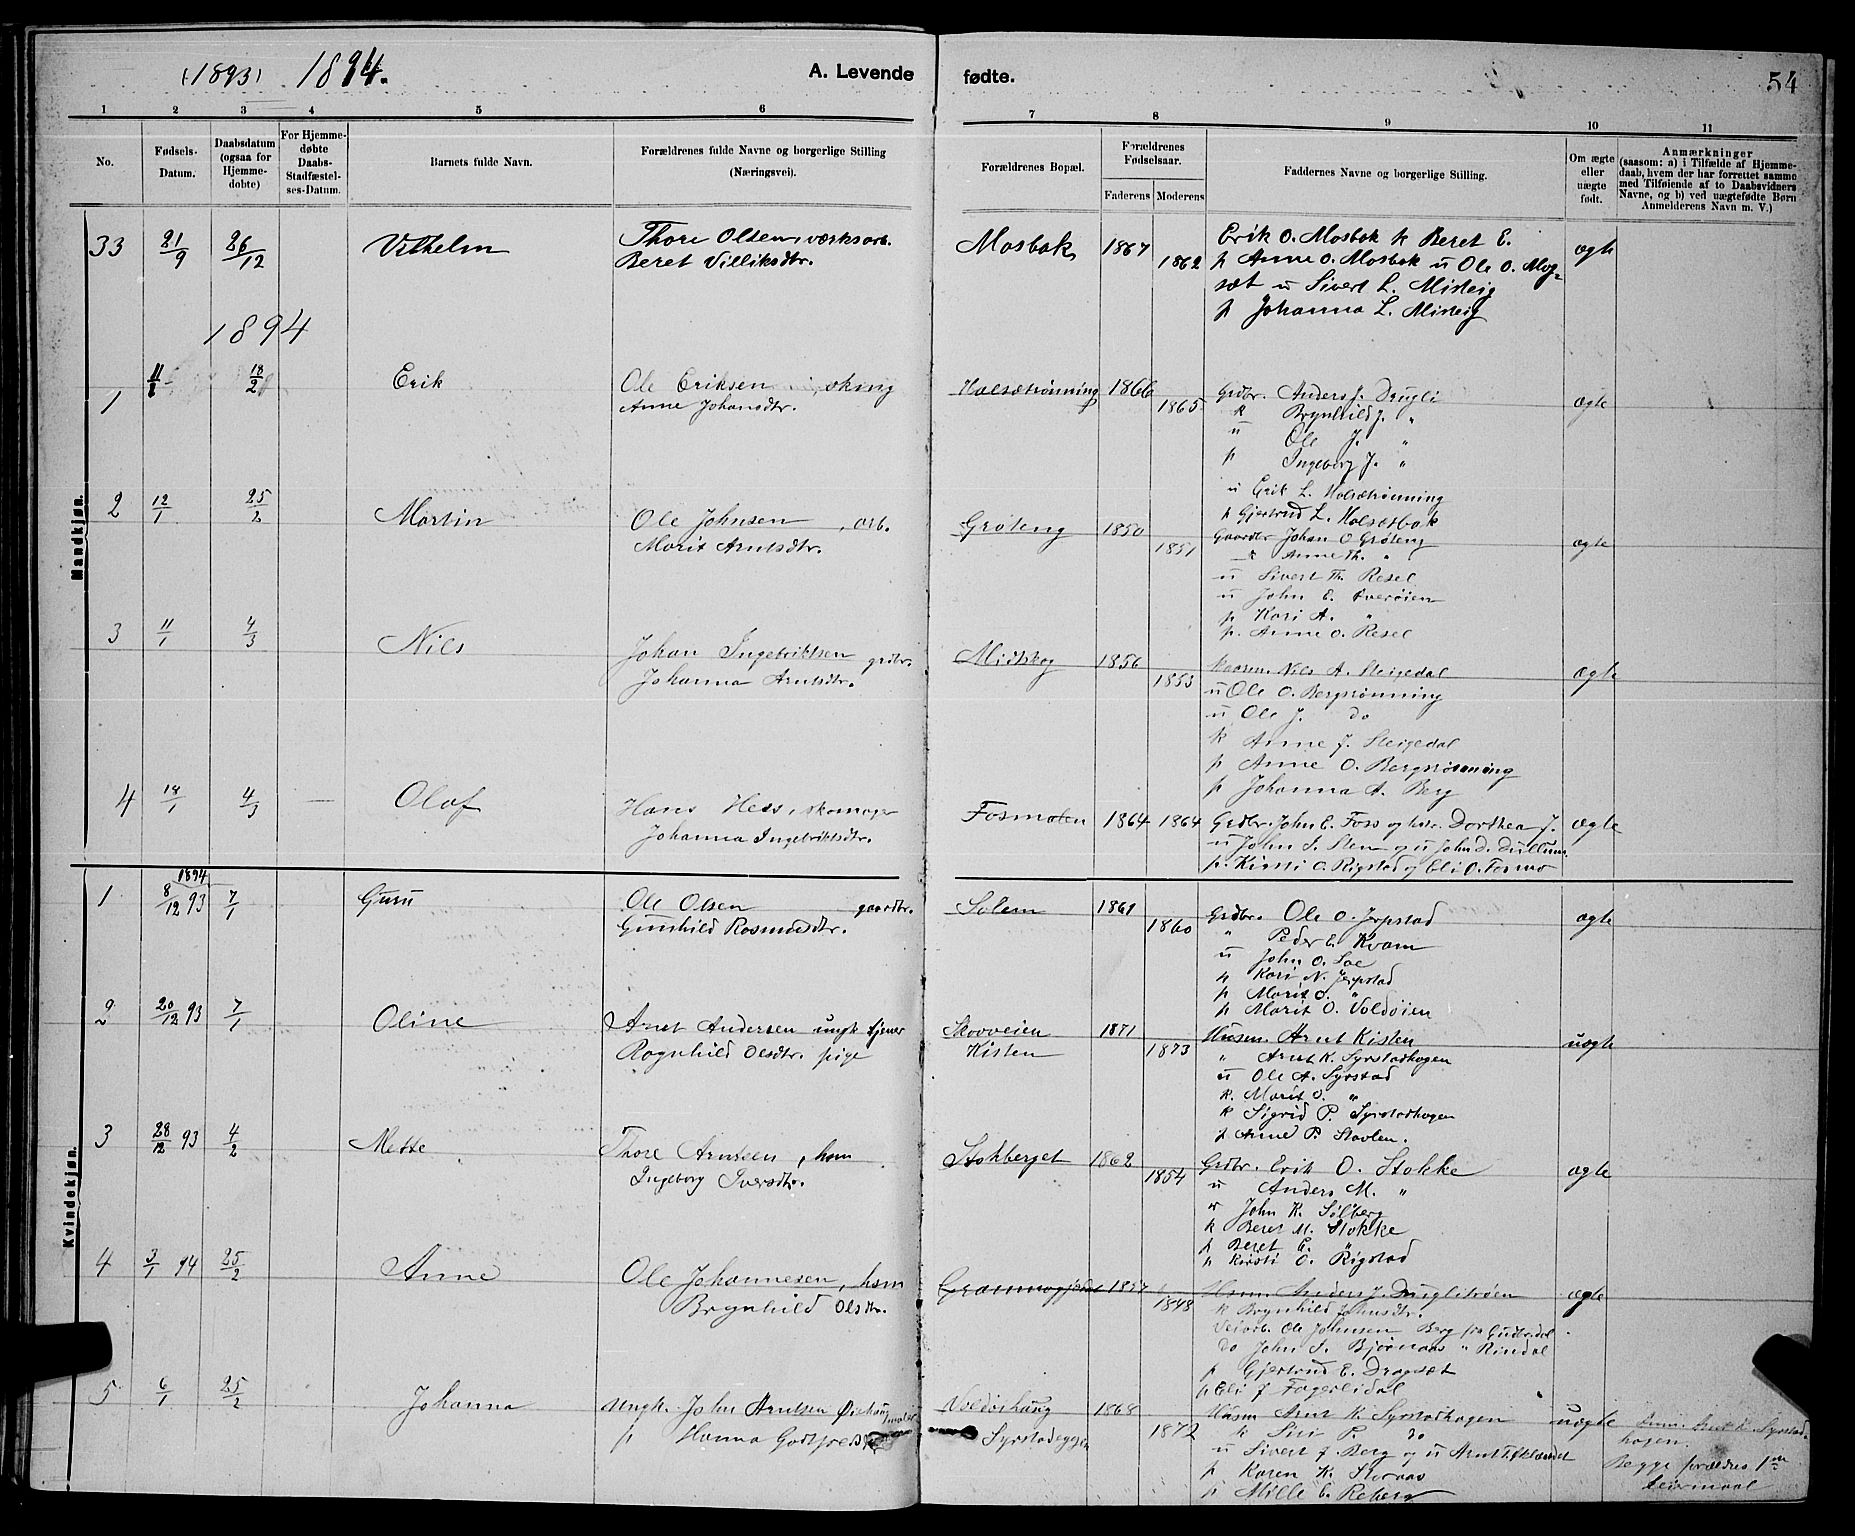 (1893) 1894.
A. Levende
fødte.
54
1 2 3 4 5 6
7 8 9 10 11
No.
Fødsels-
Datum.
Daabsdatum
(ogsaa for
Hjemme-
døbte)
For Hjemme-
døbte
Daabs-
Stadfæstel-
ses-Datum.
Barnets fulde Navn.
Forældrenes fulde Navne og borgerlige Stilling
(Næringsvei).
Forældrenes Bopæl.
Forældrenes
Fødselsaar.
Faderens Moderens
Faddernes Navne og borgerlige Stilling.
Om ægte
eller
uægte
født.
Anmærkninger
(saasom: a) i Tilfælde af Hjemme-
daab, hvem der har forrettet samme
med Tilføiende af to Daabsvidners
Navne, og b) ved uægtefødte Børn
Anmelderens Navn m. V.)
Mandkjøn.
33 21/9 26/12 Vilhelm
Thore Olsen, værksarb.
Beret Villiksdtr.
Mosbak 1867
1862
Erik O. Mosbak k Beret E.
p Anne O. Mosbak u Ole O. Mog-
sæt u Sivert L.
p Johanna L.
ægte
1894
1 11/1 18/2 Erik
Ole Eriksen
Anne Johansdtr.
Holsætrønning 1866
1865
Grdbr. Anders J. Drugli
k Brynhild J. "
u Ole J. "
p Ingeborg J. "
u Erik L. Holsætrønning
p Gjertrud L. Holsætbak
ægte
2 12/1 25/2 Martin
Ole Johnsen, arb.
Marit Arntsdtr.
Grøteng 1850
1851
Gaardbr Johan O Grøteng
k Anne Th. "
u Sivert Th. Resel
u John E. Tverøien
p Kari A. "
p. Anne O. Resel
ægte
3 11/1 4/3 Nils
Johan Ingebriktsen grdbr.
Johanna Arntsdtr.
Midtskog 1856
1853
Nils A. Steigedal
u Ole O. Bergsrønning
u Ole J. do
k Anne J. Steigedal
p Anne O. Bergsrønning
p Johanna A. Berg
ægte
4 14/1 4/3 — Olaf
Hans Hess, skomager
Johanna Ingebriktsdtr.
Fosmoen 1864 1864
Grdbr. John E. Foss og hstr. Dorthea J.
u John S. Sten og u John D. Dullum
p. Kirsti O. Rigstad og Eli O. Fosmo
ægte
Kvindekjøn.
1894
1 8/12 93 7/1 Guru
Ole Olsen gaardbr.
Gunhild Rasmusdtr.
Solem 1861
1860
Grdbr. Ole O. Jerpstad
" Peder E. Kvam
u John O. Soe
p Kari N. Jerpstad
p Marit O. "
p Marit O. Voldøien
ægte
2 20/12 93 7/1 Oline
Arnt Andersen ungk tjener
Ragnhild Olsdtr. pige
Skovveien 1871
Kisten 1873
Husm. Arnt Kisten
" Arnt K. Syrstadhagen
u Ole A. Syrstad
k. Marit O. "
k Sigrid P. Syrstadhagen
p Anne P. Stavlen.
uægte
3 28/12 93 4/2 Mette
Thore Arntsen, hsm
Ingeborg Iversdtr.
Stokberget 1862
1854
Grdbr. Erik O. Stokke
u Anders M. "
u John K. Solberg
k Beret M. Stokke
p Beret E. "
p Kirsti O. Rigstad
ægte
4 3/1 94 25/2 Anne
Ole Johannesen, hsm
Brynhild Olsdtr.
1854
1848
Husm. Anders J. Druglitrøen
k Brynhild Johnsdtr.
Veiarb. Ole Johnsen Berg fra Gudbr.dal
do John S. Bjørnaas " Rindal
p Gjertrud E. Dragsæt
p Eli J Fagerlidal
ægte
5 6/1 25/2 Johanna
Ungk. John Arntsen maler
p Hanna
Voldshaug 1868
Syrstadeggen 1872
Husm Arnt K. Syrstadhagen
k Siri P. do
u Sivert J. Berg og u Arnt
p Karen K. Storaas
p Mille E. Reberg
uægte
Anm. Arnt K. Syrstad-
hagen.
Begge forældres 1ste
leiermaal